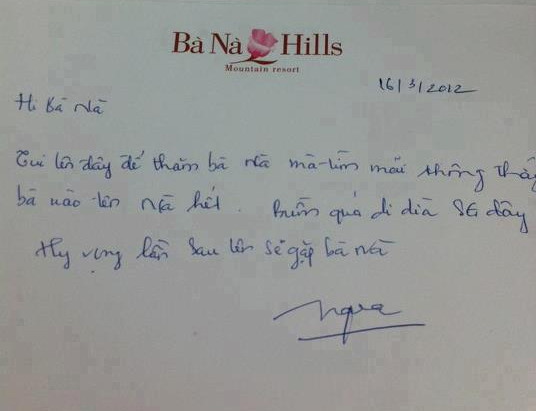 Bà Nà Hills
Mountain resort
16/3/2012
Hi Bà Nà
Tui lên đây để thăm bà Nà mà tìm mãi không thấy
bà nào tên Nà hết. Buồn quá đi dìa SG đây
Hy vọng lần sau lên sẽ gặp bà Nà